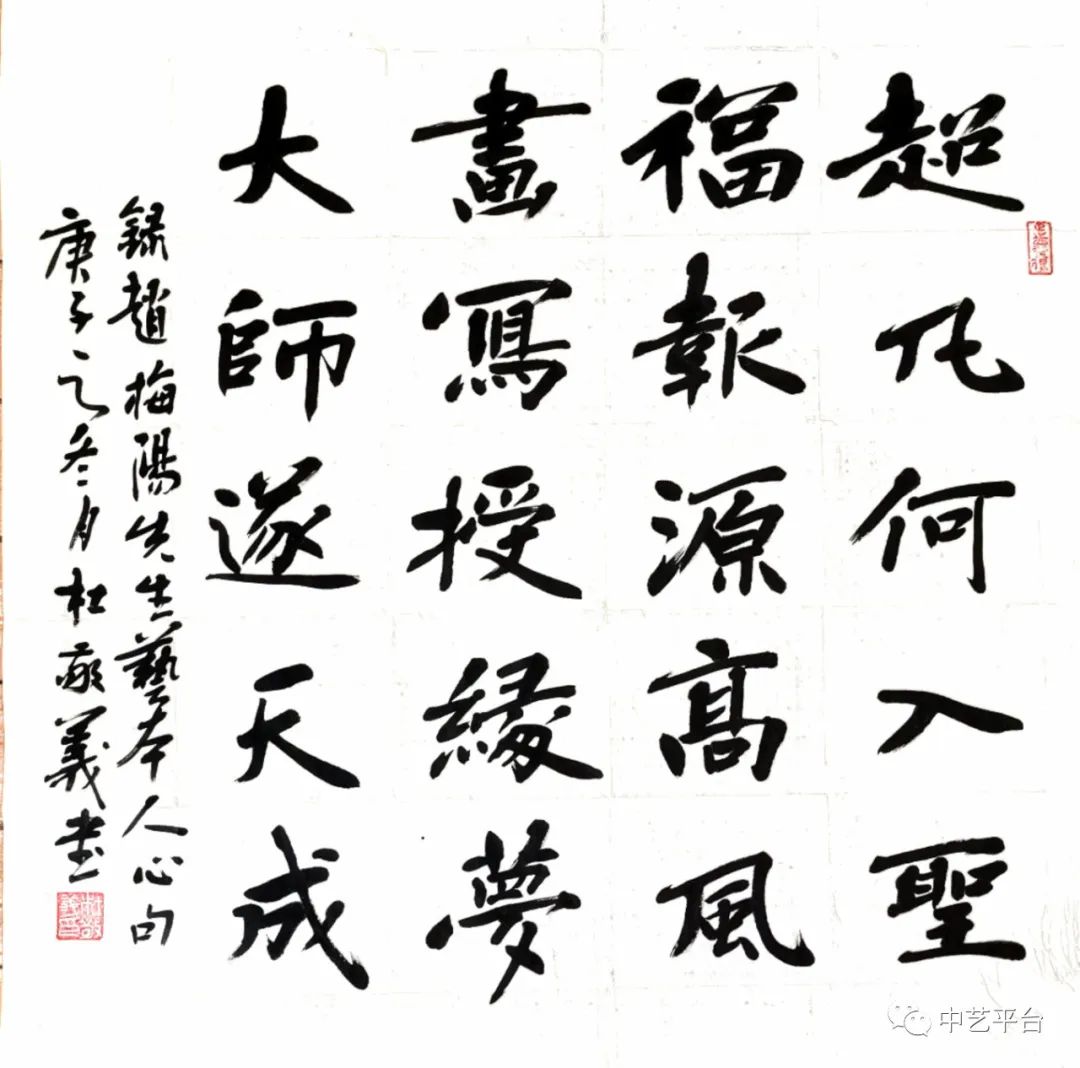 超凡何入聖
福報源髙風
畫寫授緣夢
大師遂天成
錄趙梅陽先生藝本人心句
庚子之冬月杜敬義書
中艺平台